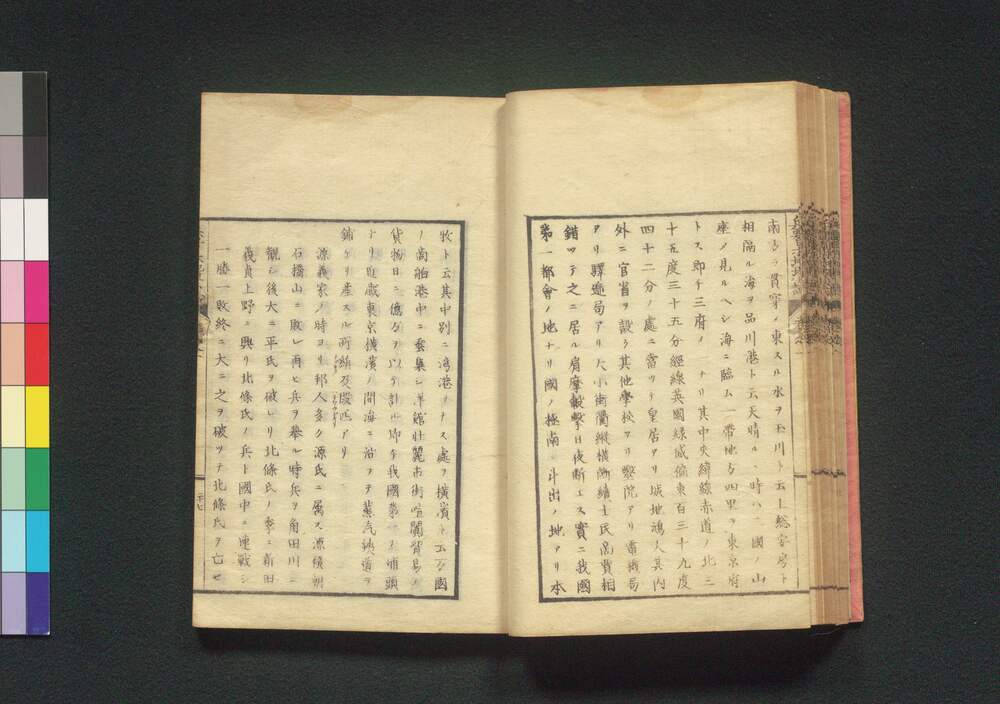 南方ヲ貫穿シ東スル水ヲ玉川ト云上総安房ト
相隔ル海ヲ品川港ト云天晴ルヽ時ハ一國ノ山
座ノ見ルヘシ海ニ臨ム一帯地方四里ヲ東京府
トス即チ三府ノ一ナリ其中央緯線赤道ノ北三
十五度三十五分經線英國緑威偏東百三十九度
四十二分ノ處ニ當ツテ皇居アリ城地鴻大其内
外ニ官省ヲ設ク其他學校アリ病院アリ電機局
アリ驛逓局アリ大小街衢縱横断續士民商賈相
錯ツテ之ニ居ル肩摩轂撃日夜断エス實ニ我國
第一都會ノ地ナリ國ノ極南ニ斗出ノ地アリ本
牧ト云其中別ニ湾港ヲナス處ヲ横濱ト云各國
ノ商舶港中ニ麕集シ洋館壮麗市街喧闐貿易ノ
貨物日ニ億万ヲ以テ計ル即チ我國第一ノ埔頭
ナリ近歳東京横濱ノ間海ニ沿ヲテ蒸汽鉄道ヲ
鋪ケリ産スル所絹及緞匹アリ
源義家ノ時ヨリ邦人多ク源氏ニ属ス源頼朝
石橋山ニ敗レ再ヒ兵ヲ擧ル時兵ヲ角田川ニ
觀シ後大ニ平氏ヲ破レリ北條氏ノ季ニ新田
義貞上野ニ興リ北條氏ノ兵ト國中ニ連戰シ
一勝一敗終ニ大ニ之ヲ破ツテ北條氏ヲ亡セ